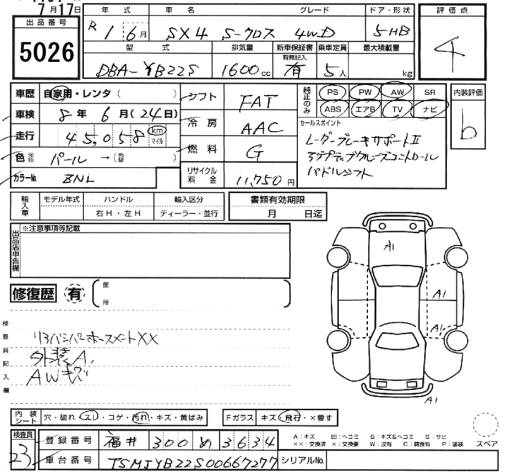 7月17日
出品番号
5026
年式 車名 グレード ドア・形状
R 1年6月 SX4 S-クロス 4WD 5HB
型式 排気量 新車保証書 乗車定員 最大積載量
有無記入
DBA-YB22S 1600cc 有 5人 kg
評価点
4
車歴 自家用・レンタ( )
車検 8年6月(24日)
走行 45,058 km マイル
色 パール→( )
カラーNo. ZNL
シフト FAT
冷房 AAC
燃料 G
リサイクル料金 11,750円
純正のみ PS PW AW SR
ABS エアB TV ナビ
セールスポイント
レーダーブレーキサポートII
アダプティブクルーズコントロール
パドルシフト
内装評価
b
輸入車 モデル年式 ハンドル 輸入区分
右H・左H ディーラー・並行
書類有効期限
月 日迄
出品店申告欄 ※注意事項等記載
修復歴 有 箇所
検査員記入欄
リアバンパーホースメントXX
外装A.
AWキズ
A1
A1
A1
内装シート 穴・破れ・スレ・コゲ・汚れ・キズ・黄ばみ
Fガラス キズ・飛石・×要す
スペア
検査員 23
登録番号 福井 300 め 3634
車台番号 TSMJYB22S00667277
シリアルNo.
A:キズ 凹:ヘコミ B:キズ&ヘコミ S:サビ
××:交換済 ×:要交換 W:波有 C:腐食有 P:塗装